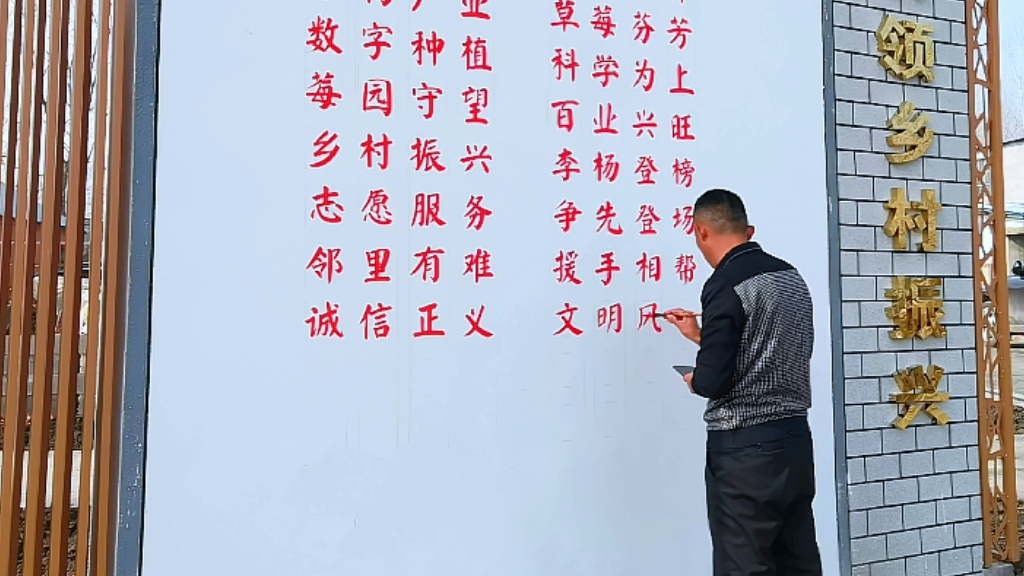 数字种植
莓园守望
乡村振兴
志愿服务
邻里有难
诚信正义
草莓芬芳
科学为上
百业兴旺
李杨登榜
争先登场
援手相帮
文明风
领乡村振兴